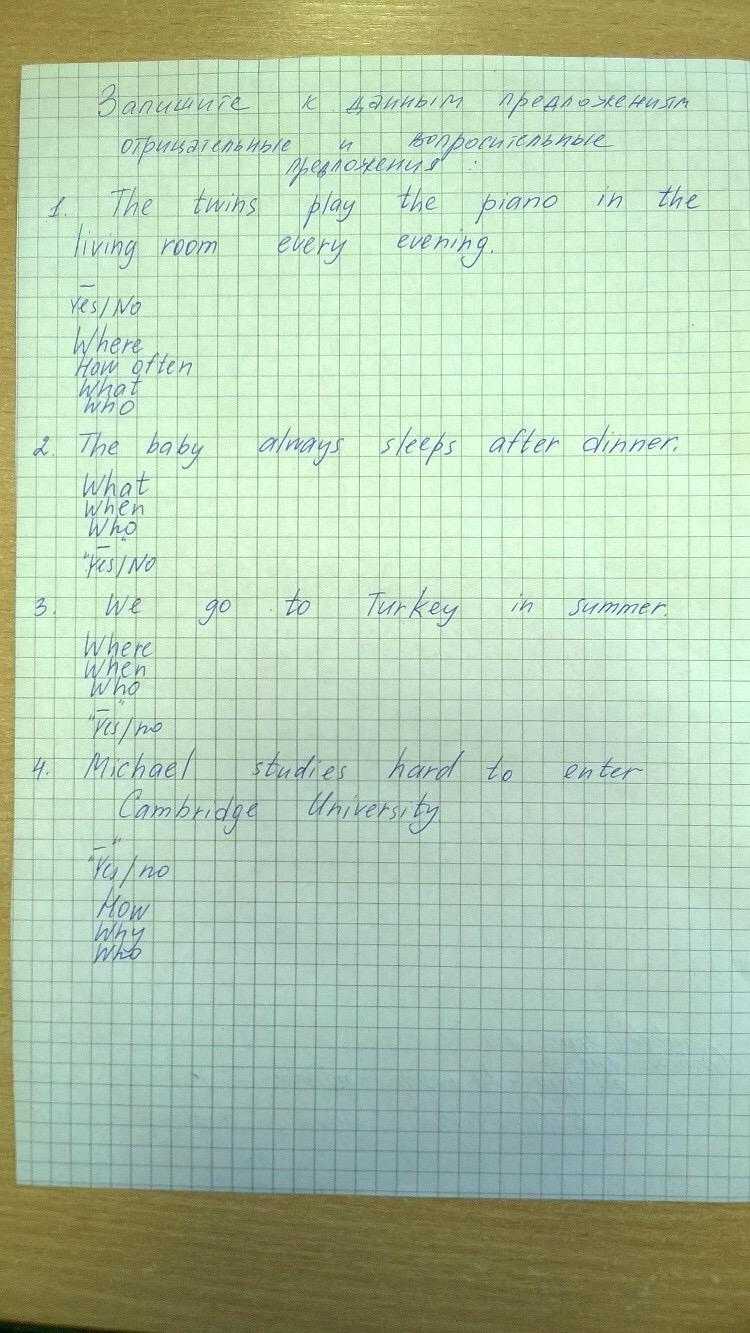 Запишите к данным предложениям
отрицательные и вопросительные
предложения :
1. The twins play the piano in the
living room every evening.
—
Yes/No
Where
How often
What
Who
2. The baby always sleeps after dinner.
What
When
Who
"—"
Yes/No
3. We go to Turkey in summer.
Where
When
Who
"—"
Yes/no
4. Michael studies hard to enter
Cambridge University
"—"
Yes/no
How
Why
Who